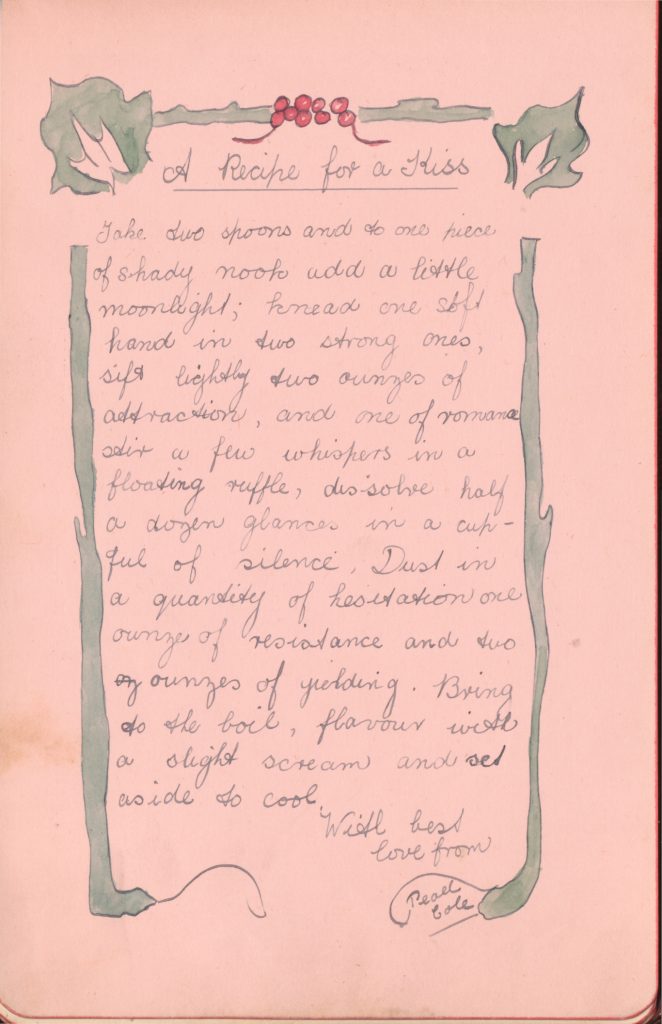 A Recipe for a Kiss
Take two spoons and to one piece
of shady nook add a little
moonlight; knead one soft
hand in two strong ones,
sift lightly two ounzes of
attraction, and one of romance
stir a few whispers in a
floating ruffle, dissolve half
a dozen glances in a cup-
ful of silence. Dust in
a quantity of hesitation one
ounze of resistance and two
ounzes of yielding. Bring
to the boil, flavour with
a slight scream and set
aside to cool.
With best
love from
Pearl
Cole